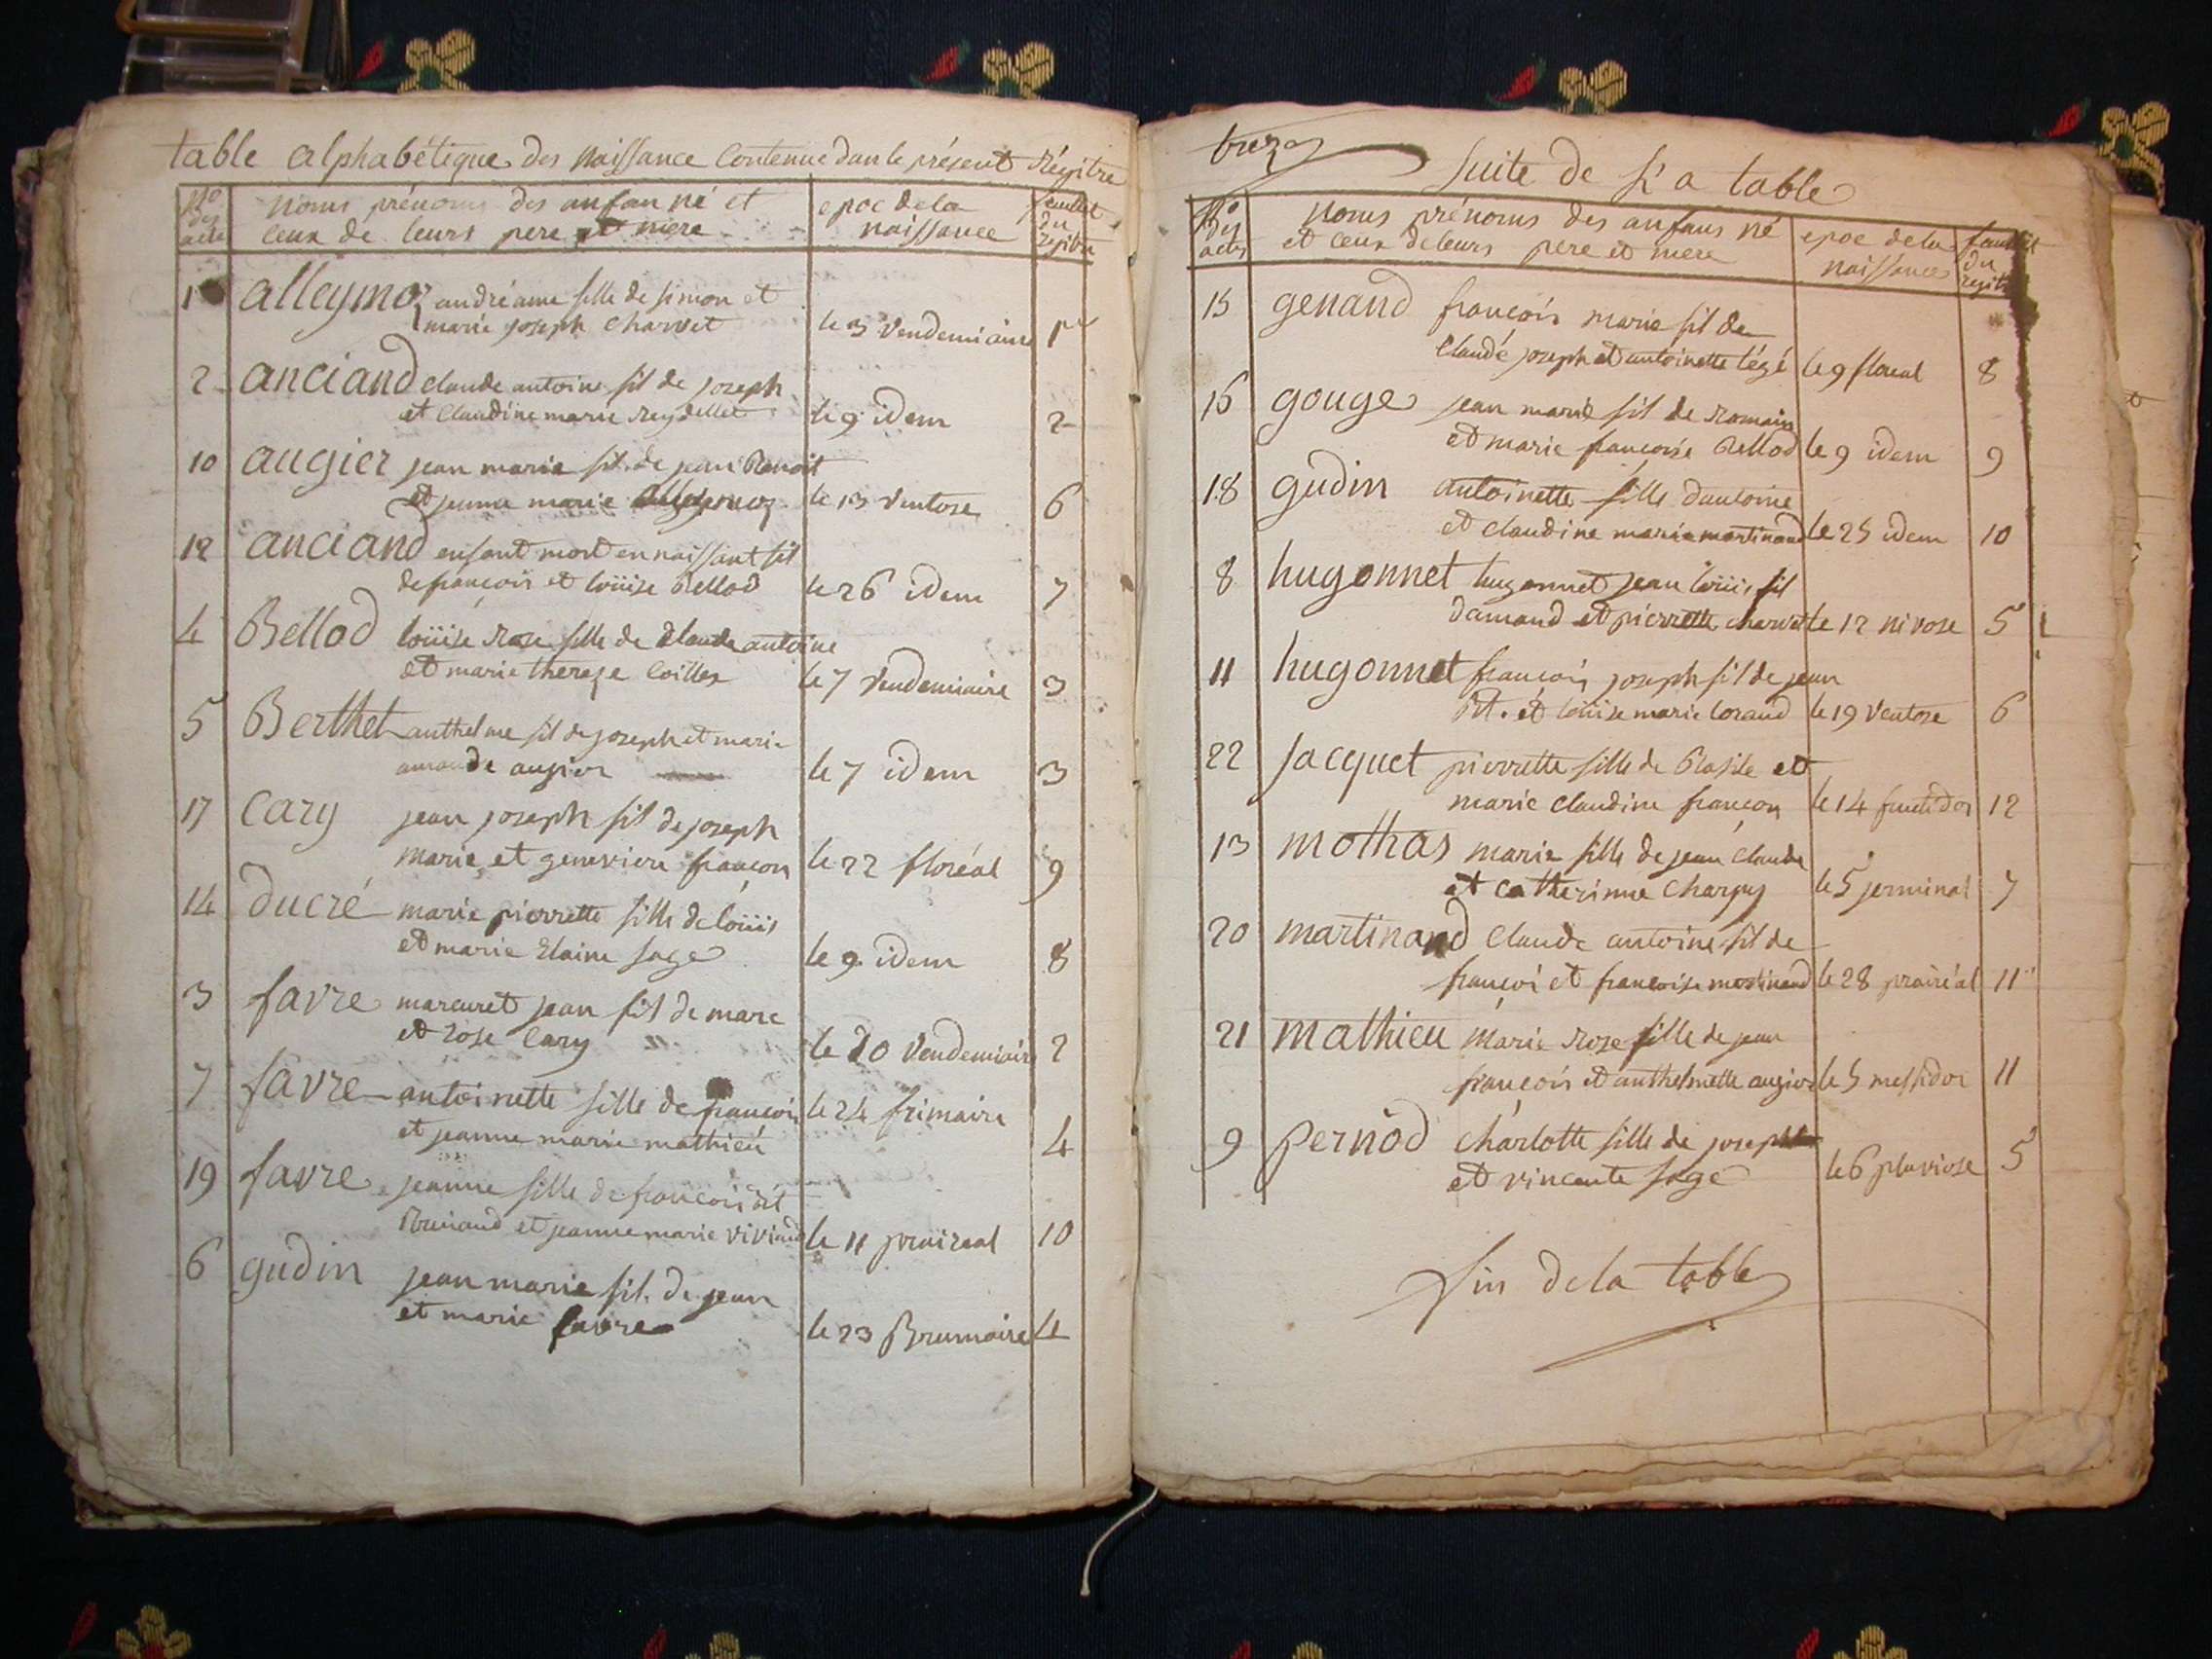 table alphabétique des Naissance Contenue dans le présent Régitre
N° des acte
Noms prénoms des anfan né et
ceux de leurs pere et mere
epoc de la
naissance
feuillet
du
régitre
1 alleymoz andréanne fille de simon et
marie joseph Charvet le 3 Vendemiaire 1er
2 anciand claude antoine fil de joseph
et Claudine marie Reydellet le 9 idem 2
10 augier jean marie fil de jean Benoit
et jeanne marie alleymoz le 13 Ventose 6
12 anciand enfant mort en naissant fil
de françois et loüise Bellod le 26 idem 7
4 Bellod loüise Rose fille de Claude antoine
et marie thereze Coillex le 7 Vendemiaire 3
5 Berthet anthelme fil de joseph et marie
amande augier le 7 idem 3
17 Cary jean joseph fil de joseph
marie et genevieve françon le 22 floréal 9
14 ducré marie pierrette fille de loüis
et marie Elaine sage le 9 idem 8
3 favre marcuret jean fil de marc
et rose Cary le 20 Vendemiaire 2
7 favre antoinette fille de françois le 24 frimaire
et jeanne marie mathieu 4
19 favre jeanne fille de françois dit
et jeanne marie viviand le 11 praireal 10
6 gudin jean marie fil de jean
et marie favre le 23 Brumaire 4
Suite de la table
N° des actes
Noms prénoms des anfans né
et ceux de leurs pere et mere
epoc de la
naissance
feuillet
du
régitre
15 genand françois marie fil de
Claude joseph et antoinette légé le 9 floreal 8
16 gouge jean marie fil de Romain
et marie françoise Bellod le 9 idem 9
18 gudin antoinette fille dantoine
et claudine marie martinand le 25 idem 10
8 hugonnet hugonnet jean loüis fil
damand et pierrette charvet le 12 nivose 5
11 hugonnet françois joseph fil de jean
Bt. et loüise marie lorand le 19 Ventose 6
22 jacquet pierrette fille de Basile et
marie Claudine françon le 14 fructidor 12
13 mothas marie fille de jean Claude
et Catherinne Charpy le 5 jerminal 7
20 martinand Claude antoine fil de
françoi et françoise martinand le 28 prairéal 11
21 mathieu marie Rose fille de jean
françois et anthelmette augier le 5 messidor 11
9 pernod charlotte fille de joseph
et vincente sage le 6 pluviose 5
fin de la table